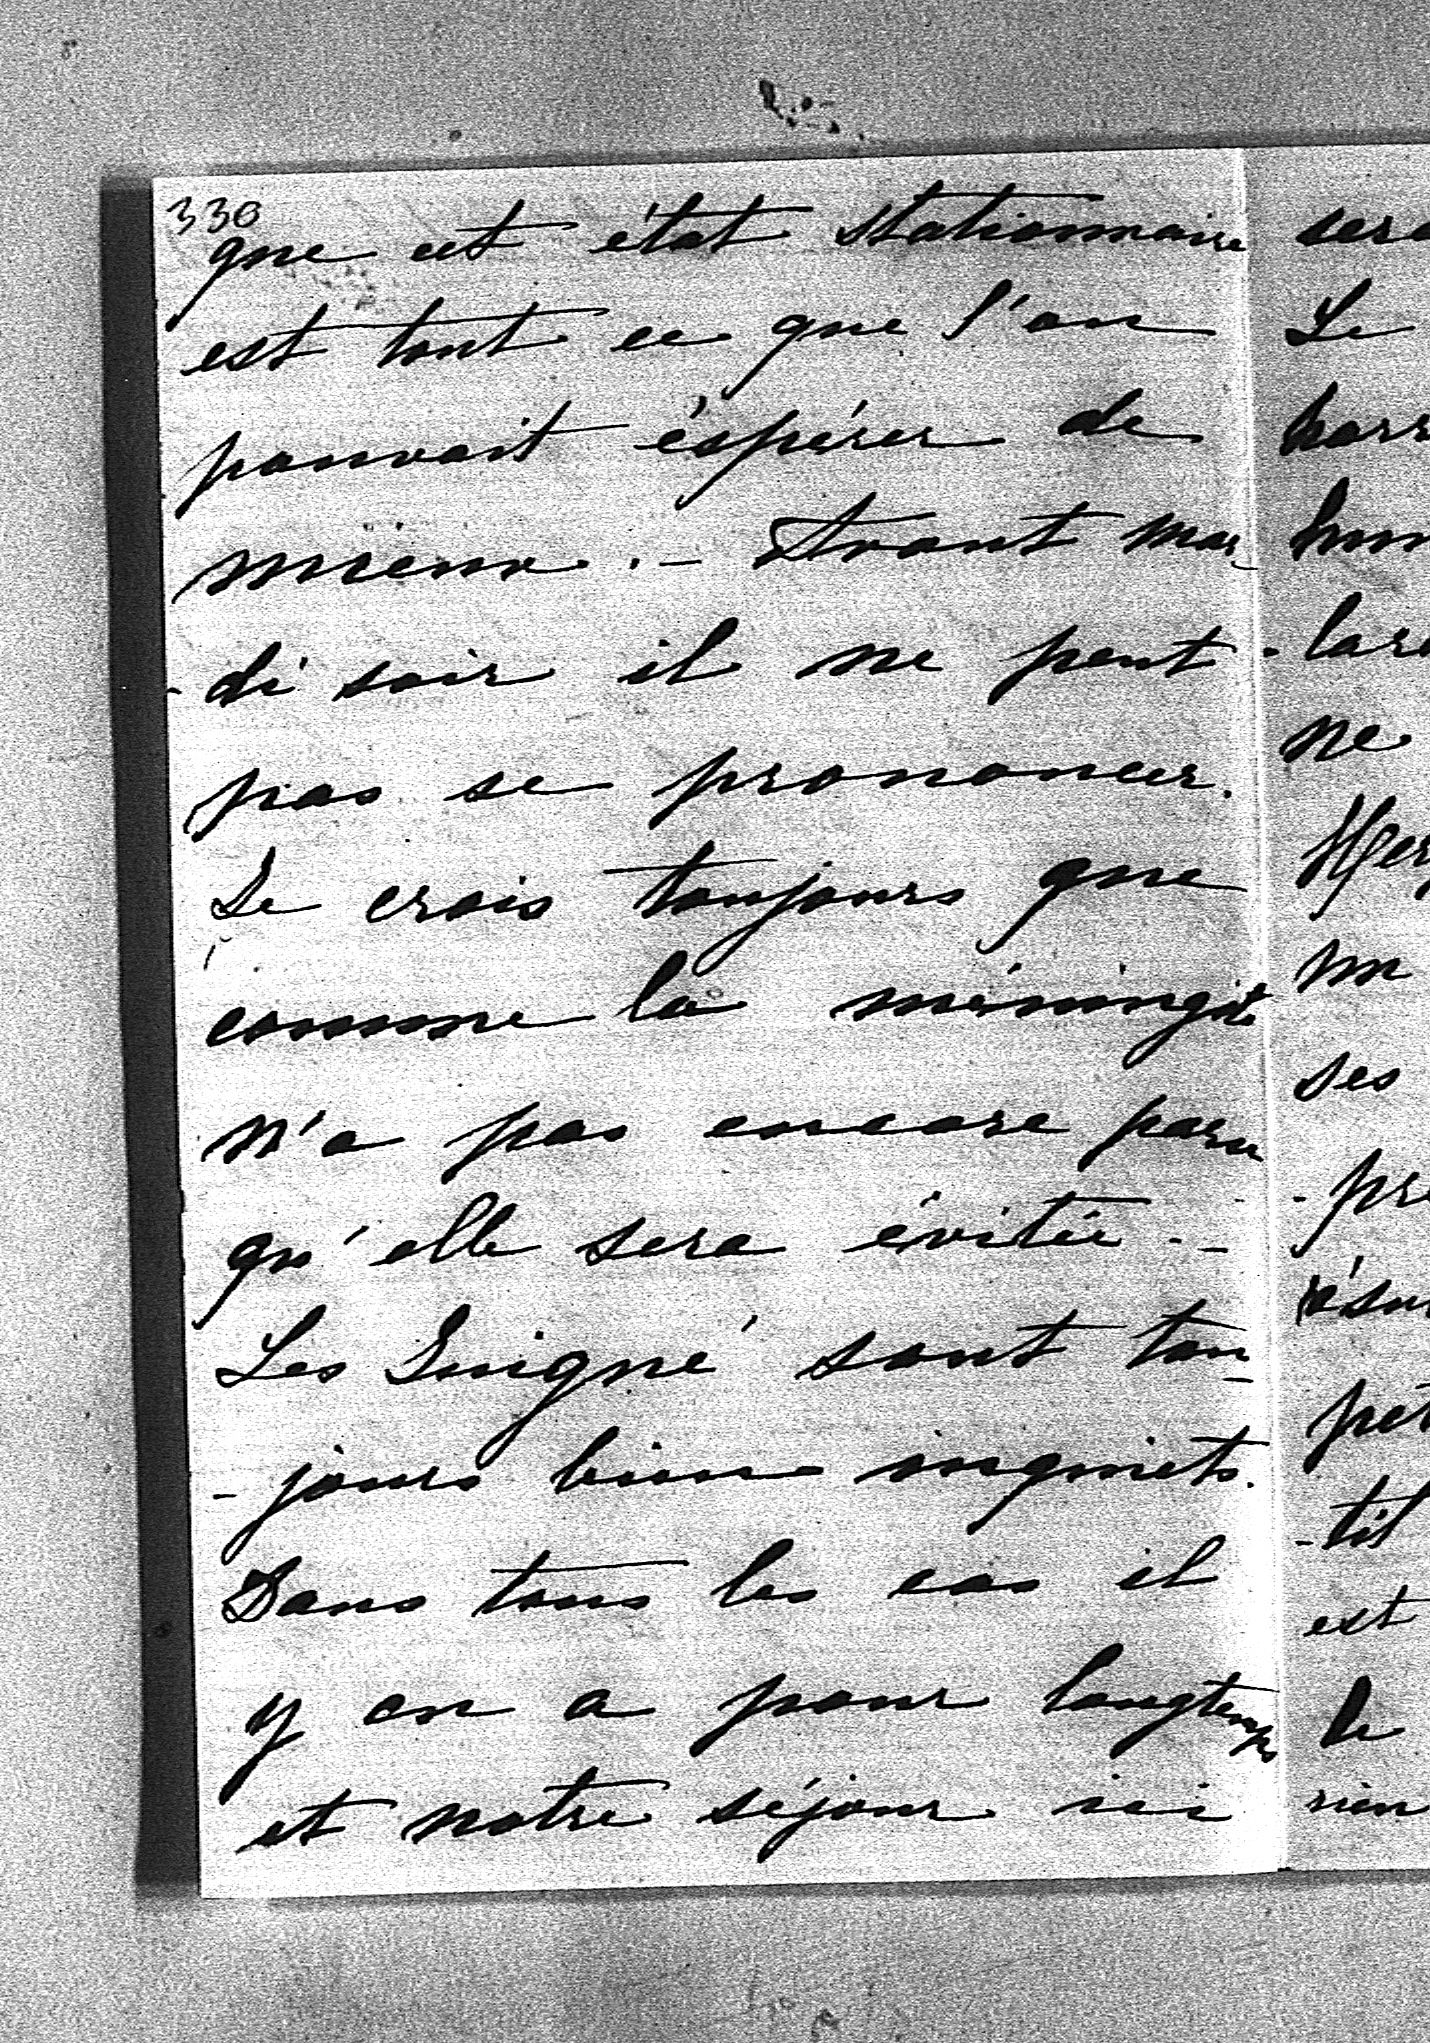 330
que cet état stationnaire
est tout ce que l'on
pouvait éspérer de
mieux. - Avant mar-
-di soir il ne peut
pas se prononcer.
Je crois toujours que
comme la méningite
n'a pas encore paru
qu'elle sera évitée. -
Les Guigné sont tou-
-jours bien inquiets.
Dans tous les cas il
y en a pour longtemps
et notre séjour ici
sera
Le
ne
un
ses
-til
est
de
rien